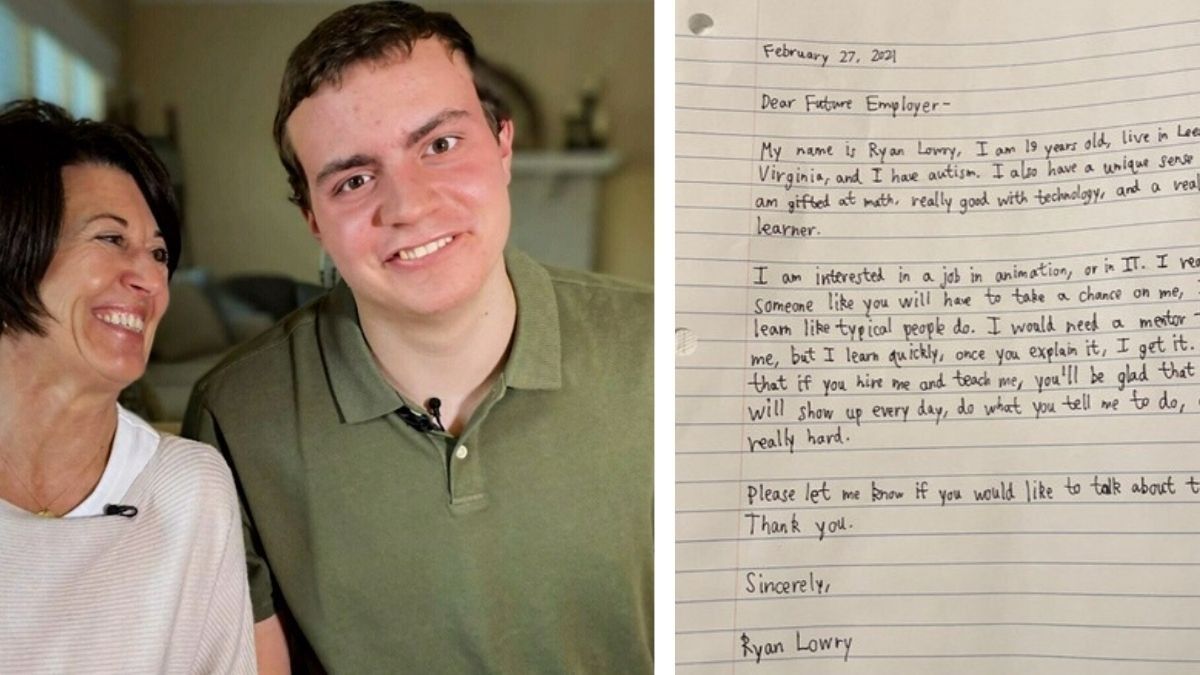 February 27, 2021
Dear Future Employer-
My name is Ryan Lowry, I am 19 years old, live in Lee
Virginia, and I have autism. I also have a unique sense
am gifted at math, really good with technology, and a
learner.
I am interested in a job in animation, or in IT. I
someone like you will have to take a chance on me,
learn like typical people do. I would need a mentor
me, but I learn quickly, once you explain it, I get it.
that if you hire me and teach me, you'll be glad that
will show up every day, do what you tell me to do,
really hard.
Please let me know if you would like to talk about
Thank you.
Sincerely,
Ryan Lowry